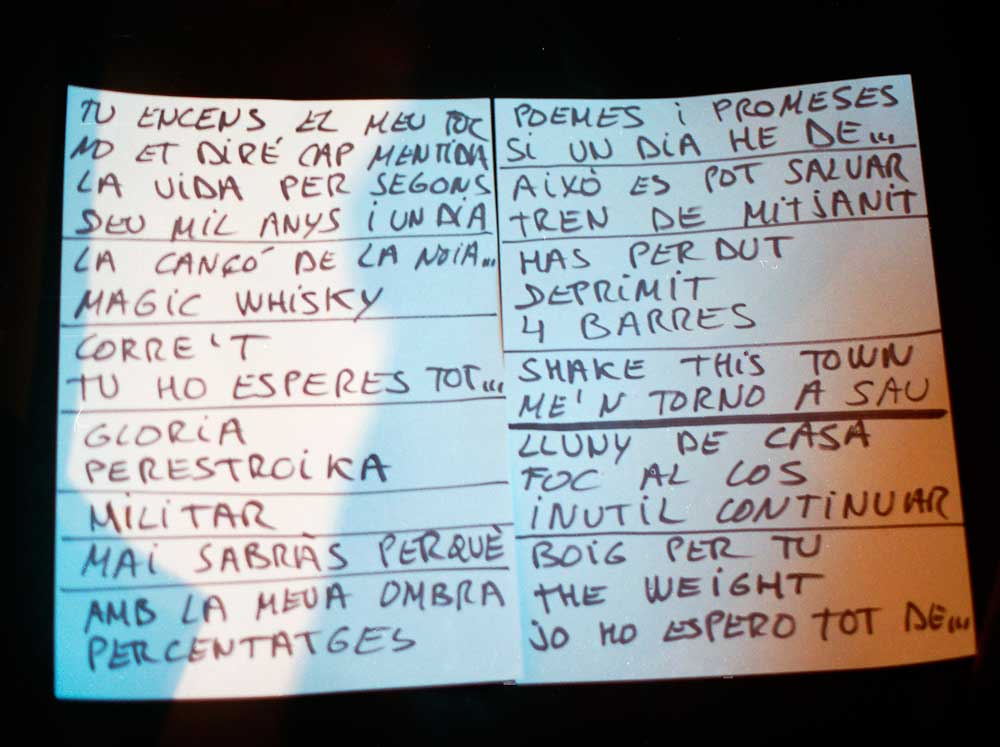 TU ENCENS EL MEU FOC
NO ET DIRÉ CAP MENTIDA
LA VIDA PER SEGONS
DEU MIL ANYS I UN DIA
LA CANÇÓ DE LA NOIA...
MAGIC WHISKY
CORRE'T
TU HO ESPERES TOT...
GLORIA
PERESTROIKA
MILITAR
MAI SABRÀS PERQUÈ
AMB LA MEVA OMBRA
PERCENTATGES
POEMES i PROMESES
Si UN DiA HE DE...
AiXÒ ES POT SALVAR
TREN DE MiTJANiT
HAS PERDUT
DEPRiMiT
4 BARRES
SHAKE THiS TOWN
ME'N TORNO A SAU
LLUNY DE CASA
FOC AL COS
iNUTiL CONTiNUAR
BOiG PER TU
THE WEiGHT
JO HO ESPERO TOT DE...